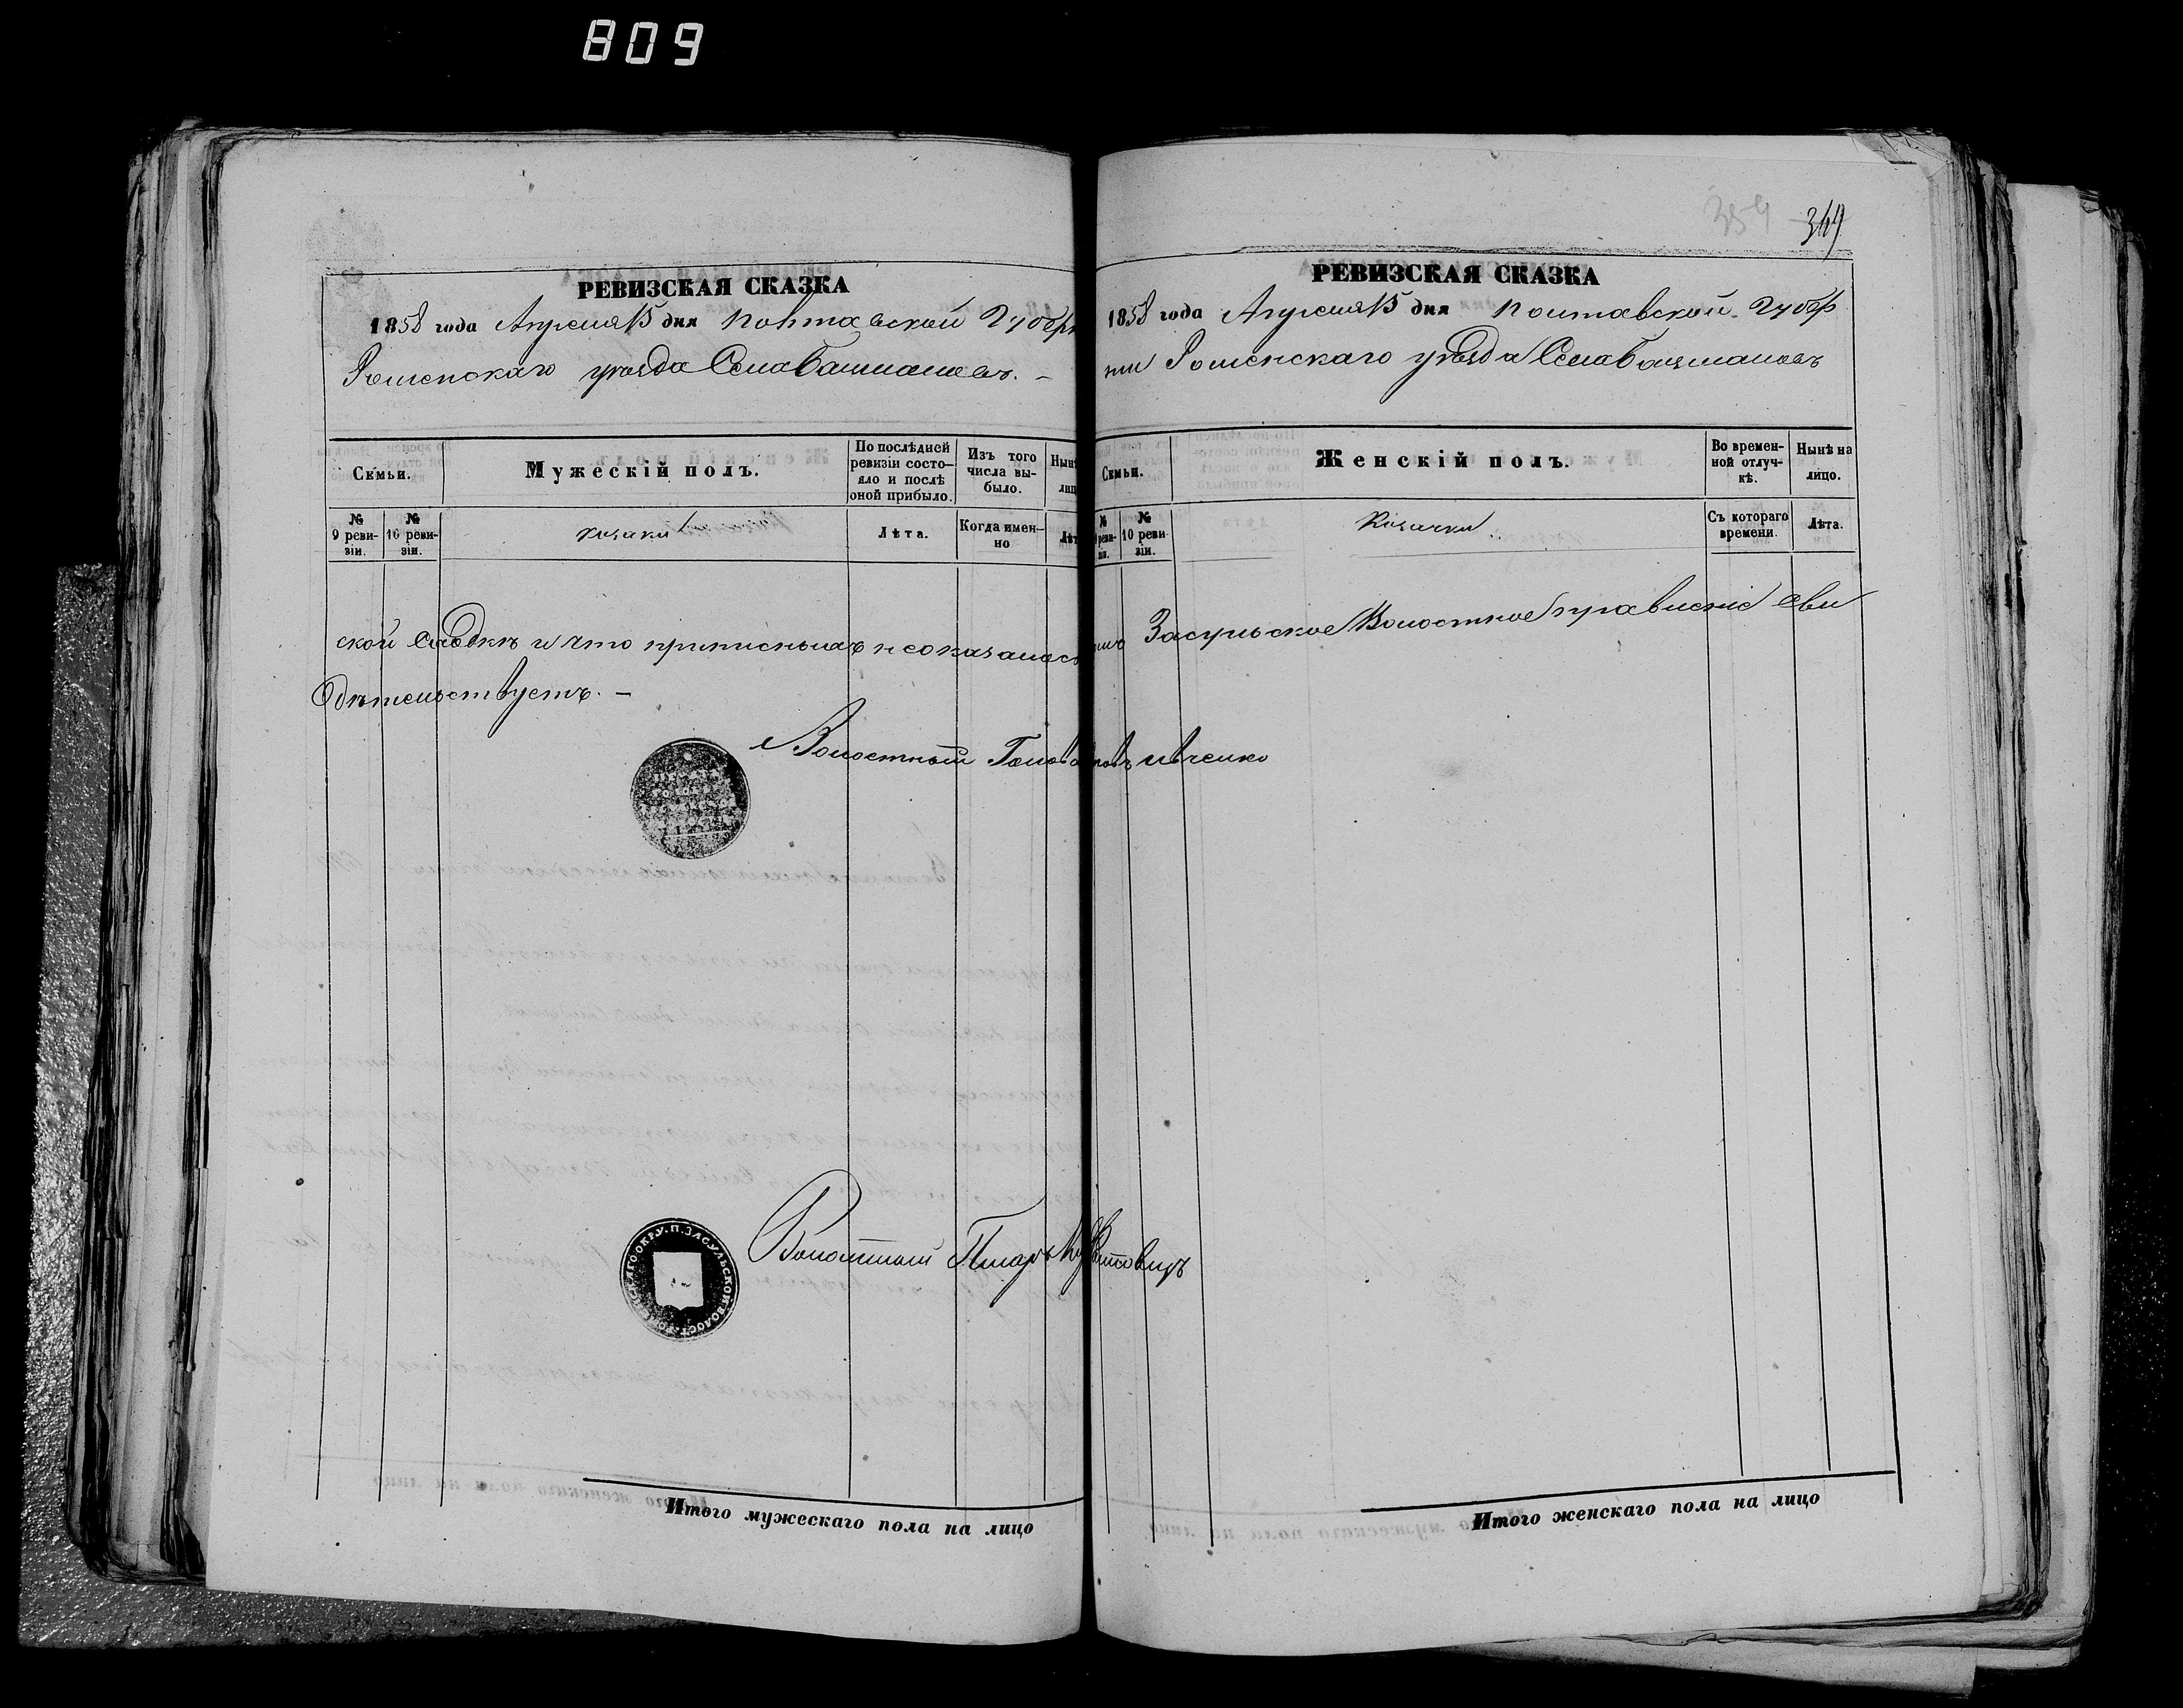 809
359 349
РЕВИЗСКАЯ СКАЗКА
1858 года Апреля 15 дня Полтавской Губер
Роменскаго уѣзда Села Бацмановъ. –
Семьи.
Мужескій полъ.
По послѣдней ревизіи состояло и послѣ оной прибыло.
Изъ того числа выбыло.
Нынѣ лиц
№ 9 ревизіи.
№ 10 ревизіи.
козаки
Лѣта.
Когда именно
Лѣт
ской Сказкѣ и что прописныхъ неоказалось
дѣтельствуетъ. –
Волостный Голова
ОКРУ. П. ЗАСУЛЬСКОЙ ВОЛОСТ.
Волостный Писарь
Итого мужескаго пола на лицо
РЕВИЗСКАЯ СКАЗКА
1858 года Апреля 15 дня Полтавской Губер
ніи Роменскаго уѣзда Села Бацмановъ
Семьи.
Женскій полъ.
Во временной отлучкѣ.
Нынѣ на лицо.
№ 9 ревизіи.
№ 10 ревизіи.
Козачки
Съ котораго времени.
Лѣта.
Засульское Волостное Правленіе сви
Итого женскаго пола на лицо